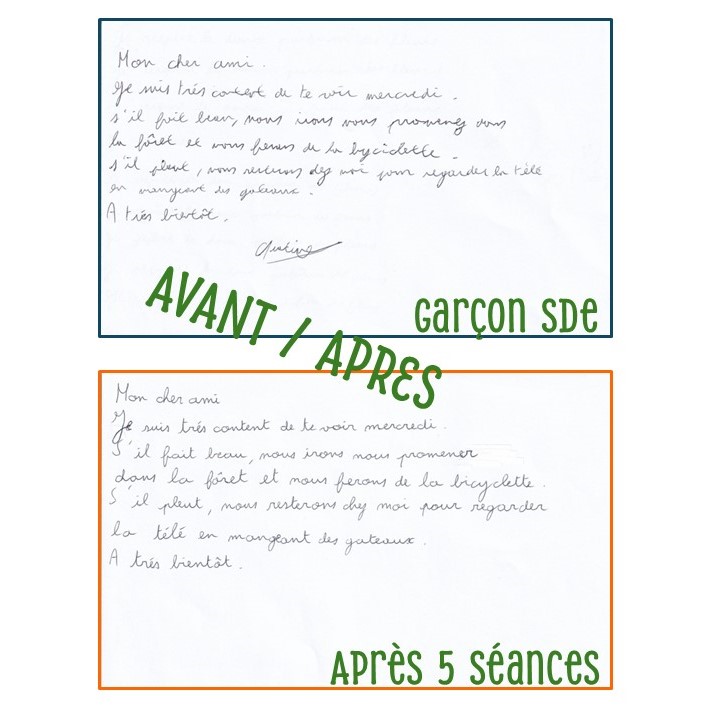 Mon cher ami.
Je suis trés content de te voir mercredi.
s'il fait beau, nous irons nous promeney dans
la fôret et nous ferons de la bycidette.
s'il pleut, nous resterons chez moi pour regarder la télé
en mangeant des gateaux.
A trés bientôt.
AVANT / APRES
Garçon SDE
Mon cher ami
Je suis trés content de te voir mercredi.
S'il fait beau, nous irons nous promener
dans la fôret et nous ferons de la bicyclette.
S'il pleut, nous resterons chy moi pour regarder
la télé en mangeant des gateaux.
A trés bientôt.
Après 5 séances